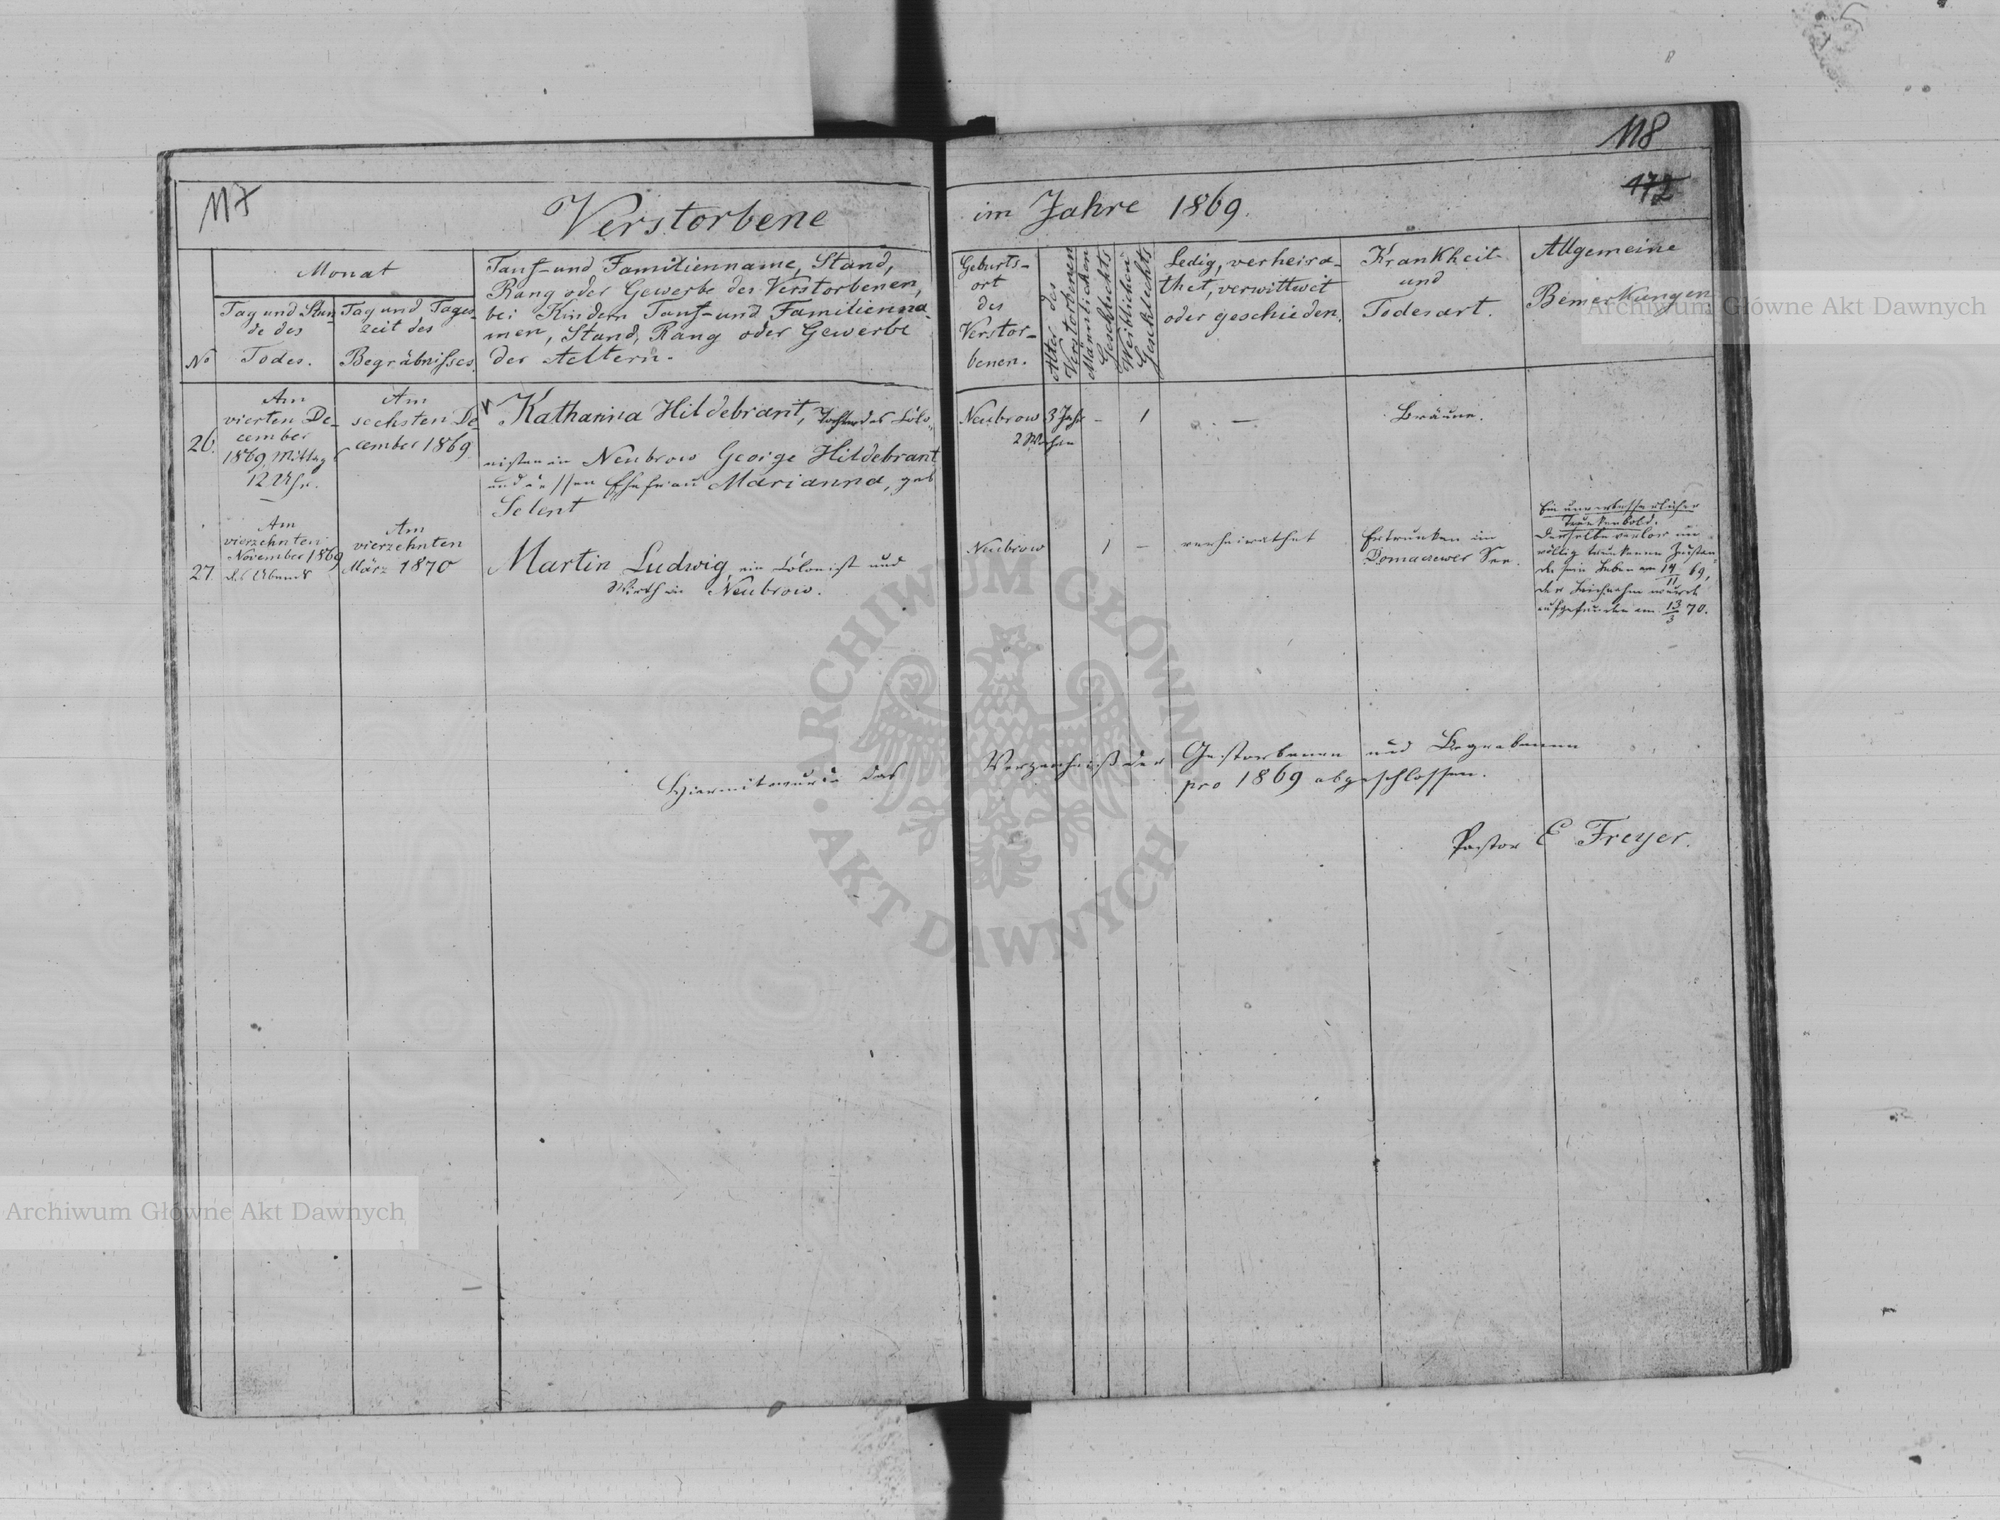 117
118
172
Verstorbene
im Jahre 1869.
Monat
No
Tag und Stun-
de des
Todes.
Tag und Tages-
zeit des
Begräbnisses.
Tauf- und Familienname, Stand,
Rang oder Gewerbe des Verstorbenen,
bei Kindern Tauf- und Familienna-
men, Stand, Rang oder Gewerbe
der Aeltern.
Geburts-
ort
des
Verstor-
benen.
Alter des
Verstorbenen
Männlichen
Geschlechts
Weiblichen
Geschlechts
Ledig, verheira-
thet, verwittwet
oder geschieden.
Krankheit
und
Todesart.
Allgemeine
Bemerkungen
26.
Am
vierten De-
cember
1869, Mittag
12 Uhr.
Am
sechsten De
cember 1869
Katharina Hildebrant, Tochter des Colo-
nisten in Neubrow George Hildebrant
und dessen Ehefrau Marianna, geb
Selent
Neubrow
3 Jahr
2 Wochen
-
1
-
Bräune.
27.
Am
vierzehnten
November 1869
des Abends
Am
vierzehnten
März 1870
Martin Ludwig, ein Colonist und
Wirth in Neubrow.
Neubrow
1
-
verheirathet
Ertrunken im
Domaczewer See.
Ein unverbesserlicher
Trunkenbold.
Derselbe verlor im
völlig trunkenen Zustan-
de sein Leben am 14/11 69,
der Leichnam wurde
aufgefunden am 13/3 70.
Hiermit wurde das Verzeichniß der Gestorbenen und Begrabenen
pro 1869 abgeschlossen.
Pastor E Freyer.
Archiwum Główne Akt Dawnych
Archiwum Główne Akt Dawnych
ARCHIWUM GŁÓWNE
AKT DAWNYCH